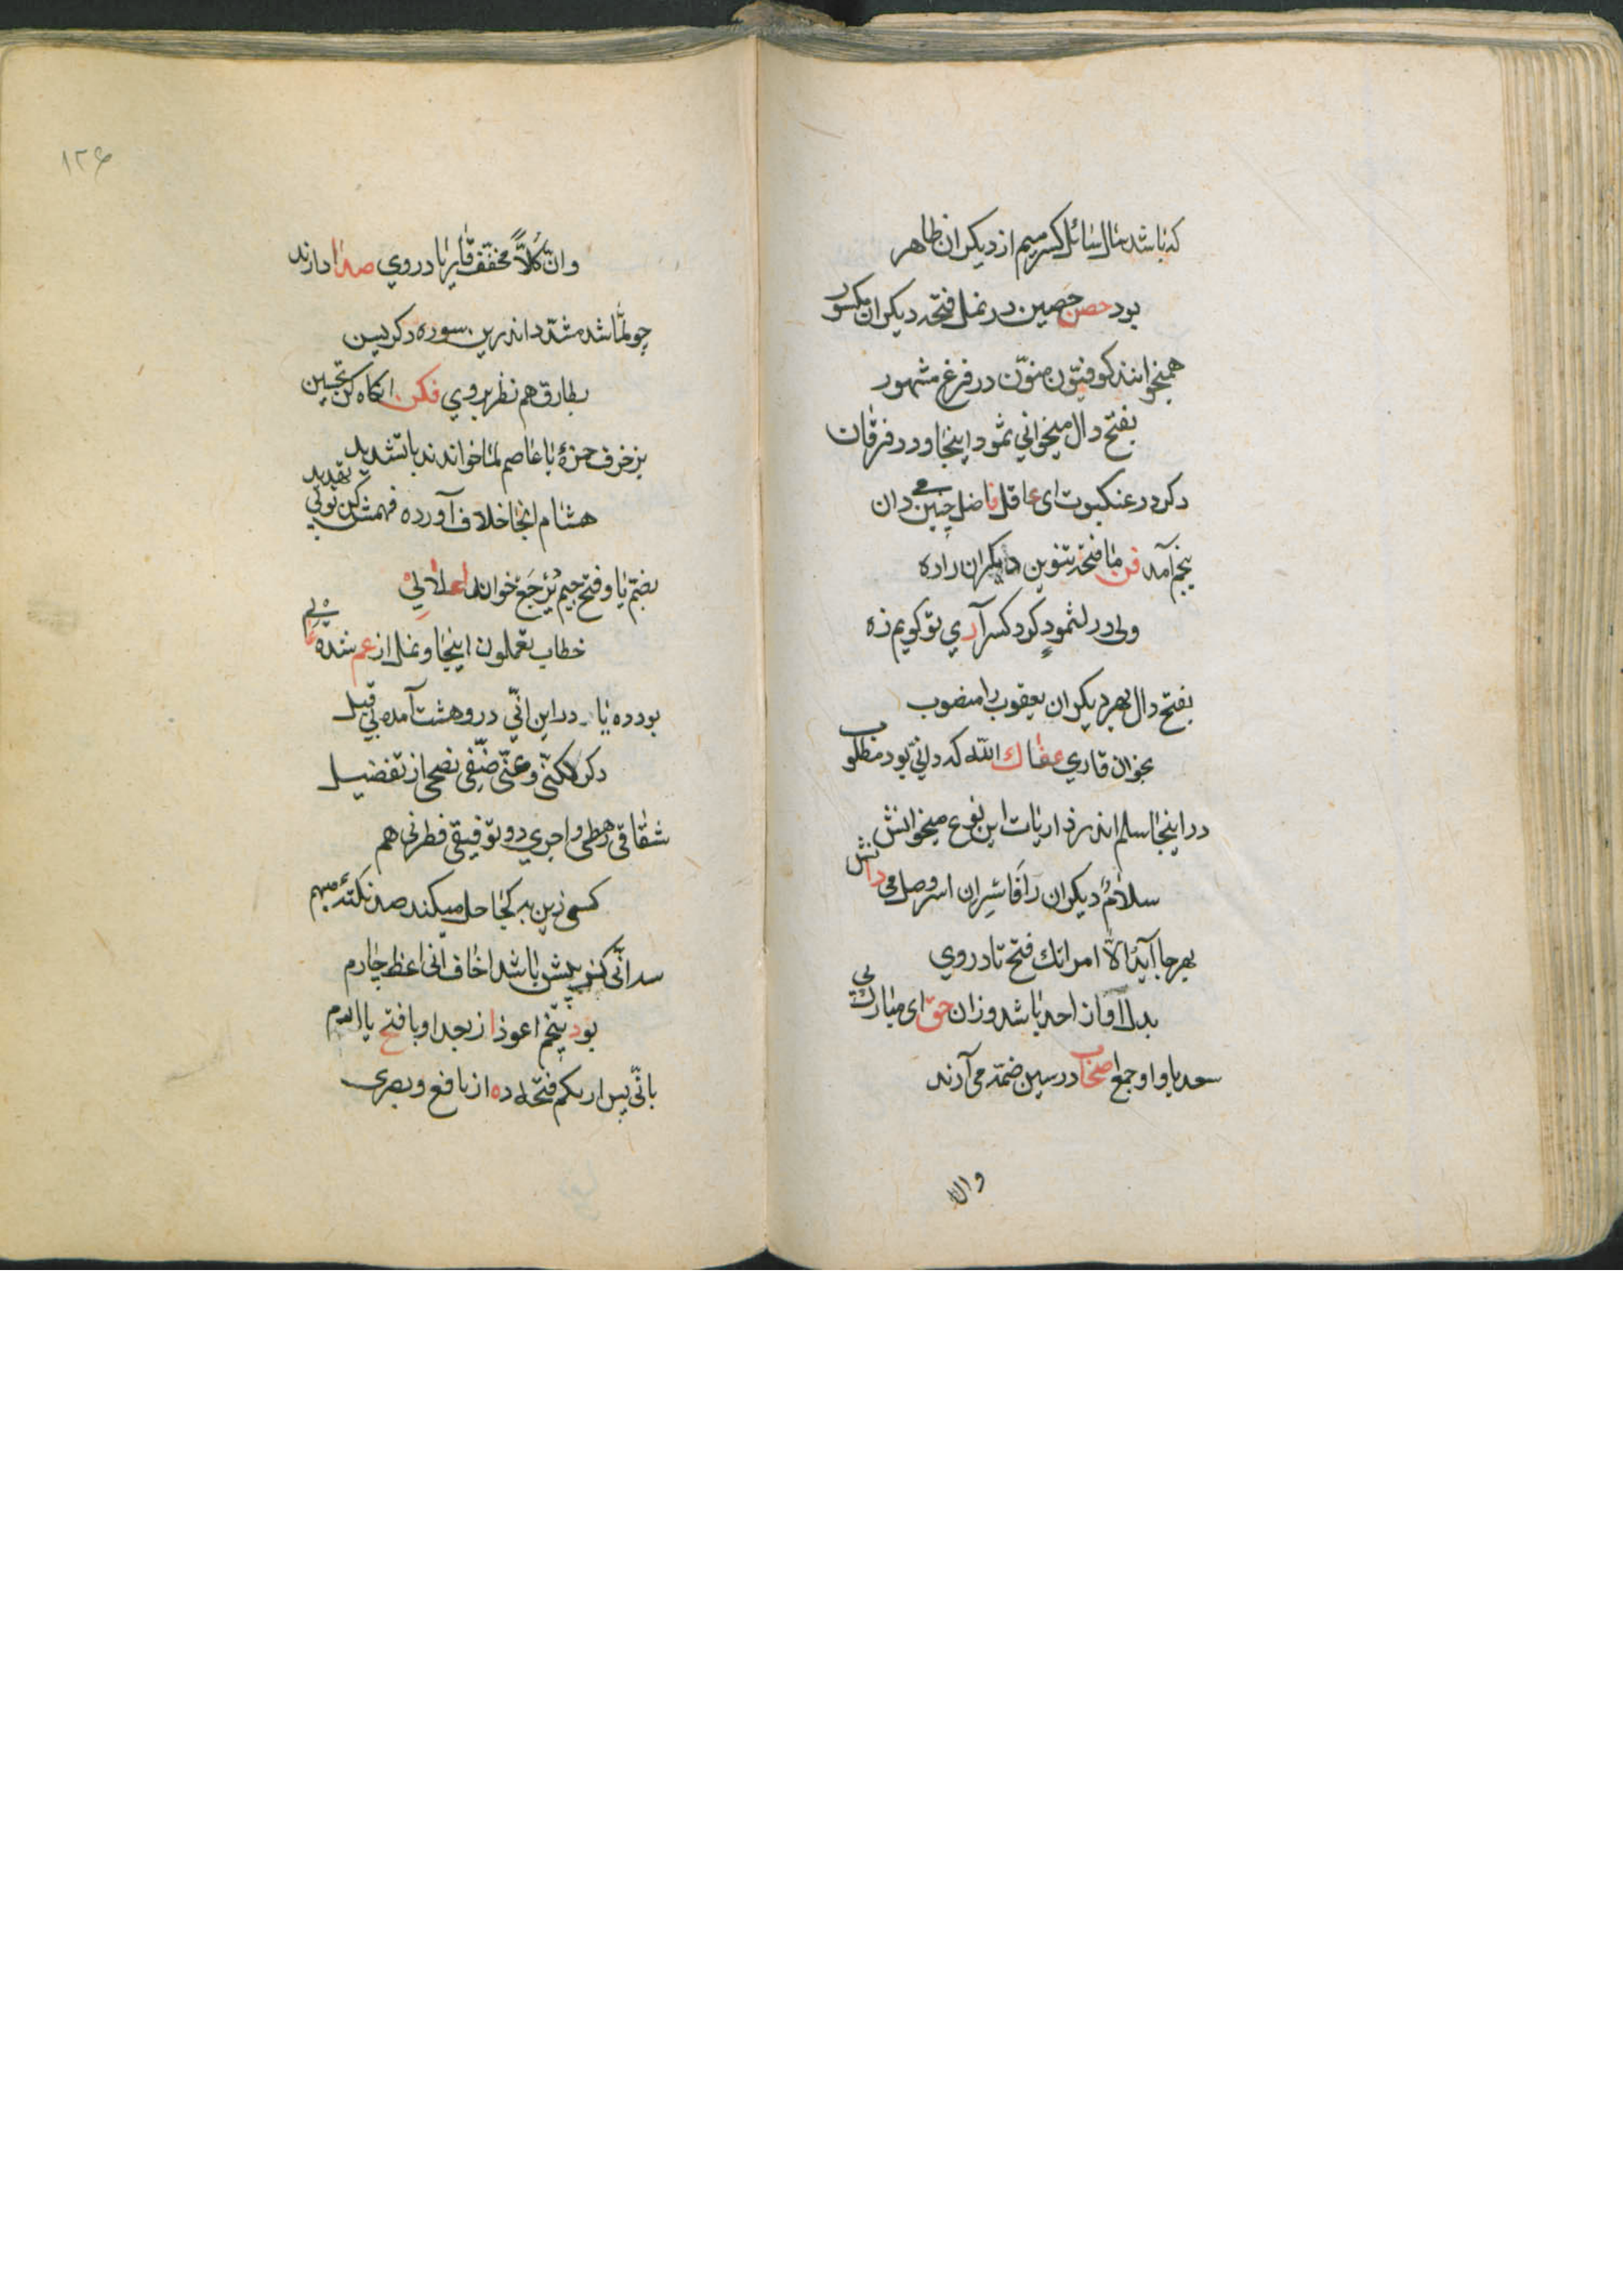 که باشد مال سائل کسر میم از دیکران ظاهر
بود حصن حصین در نمل فتحه دیکران مکسور
همیخوانند کوفیّون منوّن در فزع مشهور
بفتح دال میخوانی ثمود اینجا و در فرقان
دکر در عنکبوت ای عاقل فاضل چنین می دان
بنجم آمد فن ما فتحه تنوین دیکران را ده
ولی در لثمودٍ کرد کسر آری تو کویم زه
بفتح دال بهر دیکران یعقوب را منصوب
بخوان قاری عفاك الله که دانی بود مطلوب
در اینجا سلم اندر ذاریات این نوع میخوانش
سلامٌ دیکران را فاسرِ ان اسر وصل می دانش
بهر جا آید الّا امراتك فتح تا در وی
بدل آواز احد باشد وزان حق ای مبارك پی
سعد با واو جمع اصحاب در سین ضمّه می آرند
وان
وان کلاًّ مخفّف قایر با در وی صدا دارند
چو لمّا شد مشدّد اندرین سوره دکر یسین
بطارق هم نظر بر وی فکن انکاه کن تحسین
بزخرف حمزهٔ با عاصم لمّا خواندند با تشدید
هشام انجا خلاف آورده فهمش کن تو بی تقدید
بضمّ یا و فتح جیم یُرجَع خواند اعلا لی
خطاب تعملون اینجا و نمل از عم شده
بود ده یا در این انّی درو هشت آمده بی قیل
دکر لاکنّی و عنّی ضیفی نصحی از تفضیل
شقاقی رهطی و اجری دو توفیقی فطرنی هم
کسی زین به کجا حل میکند صد نکتهٔ مبهم
سه انّی کنو پیش باشد اخاف انی اعظ چارم
بود پنجم اعوذ از بعد او با فتح یا
بانّی پس اریکم فتحه ده از نافع و بصری
۱۲۶